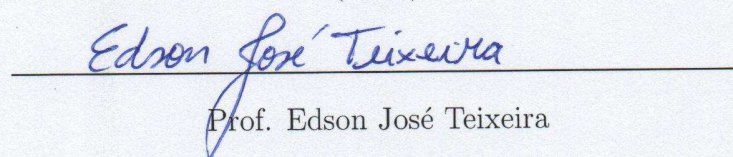 Edson José Teixeira
Prof. Edson José Teixeira